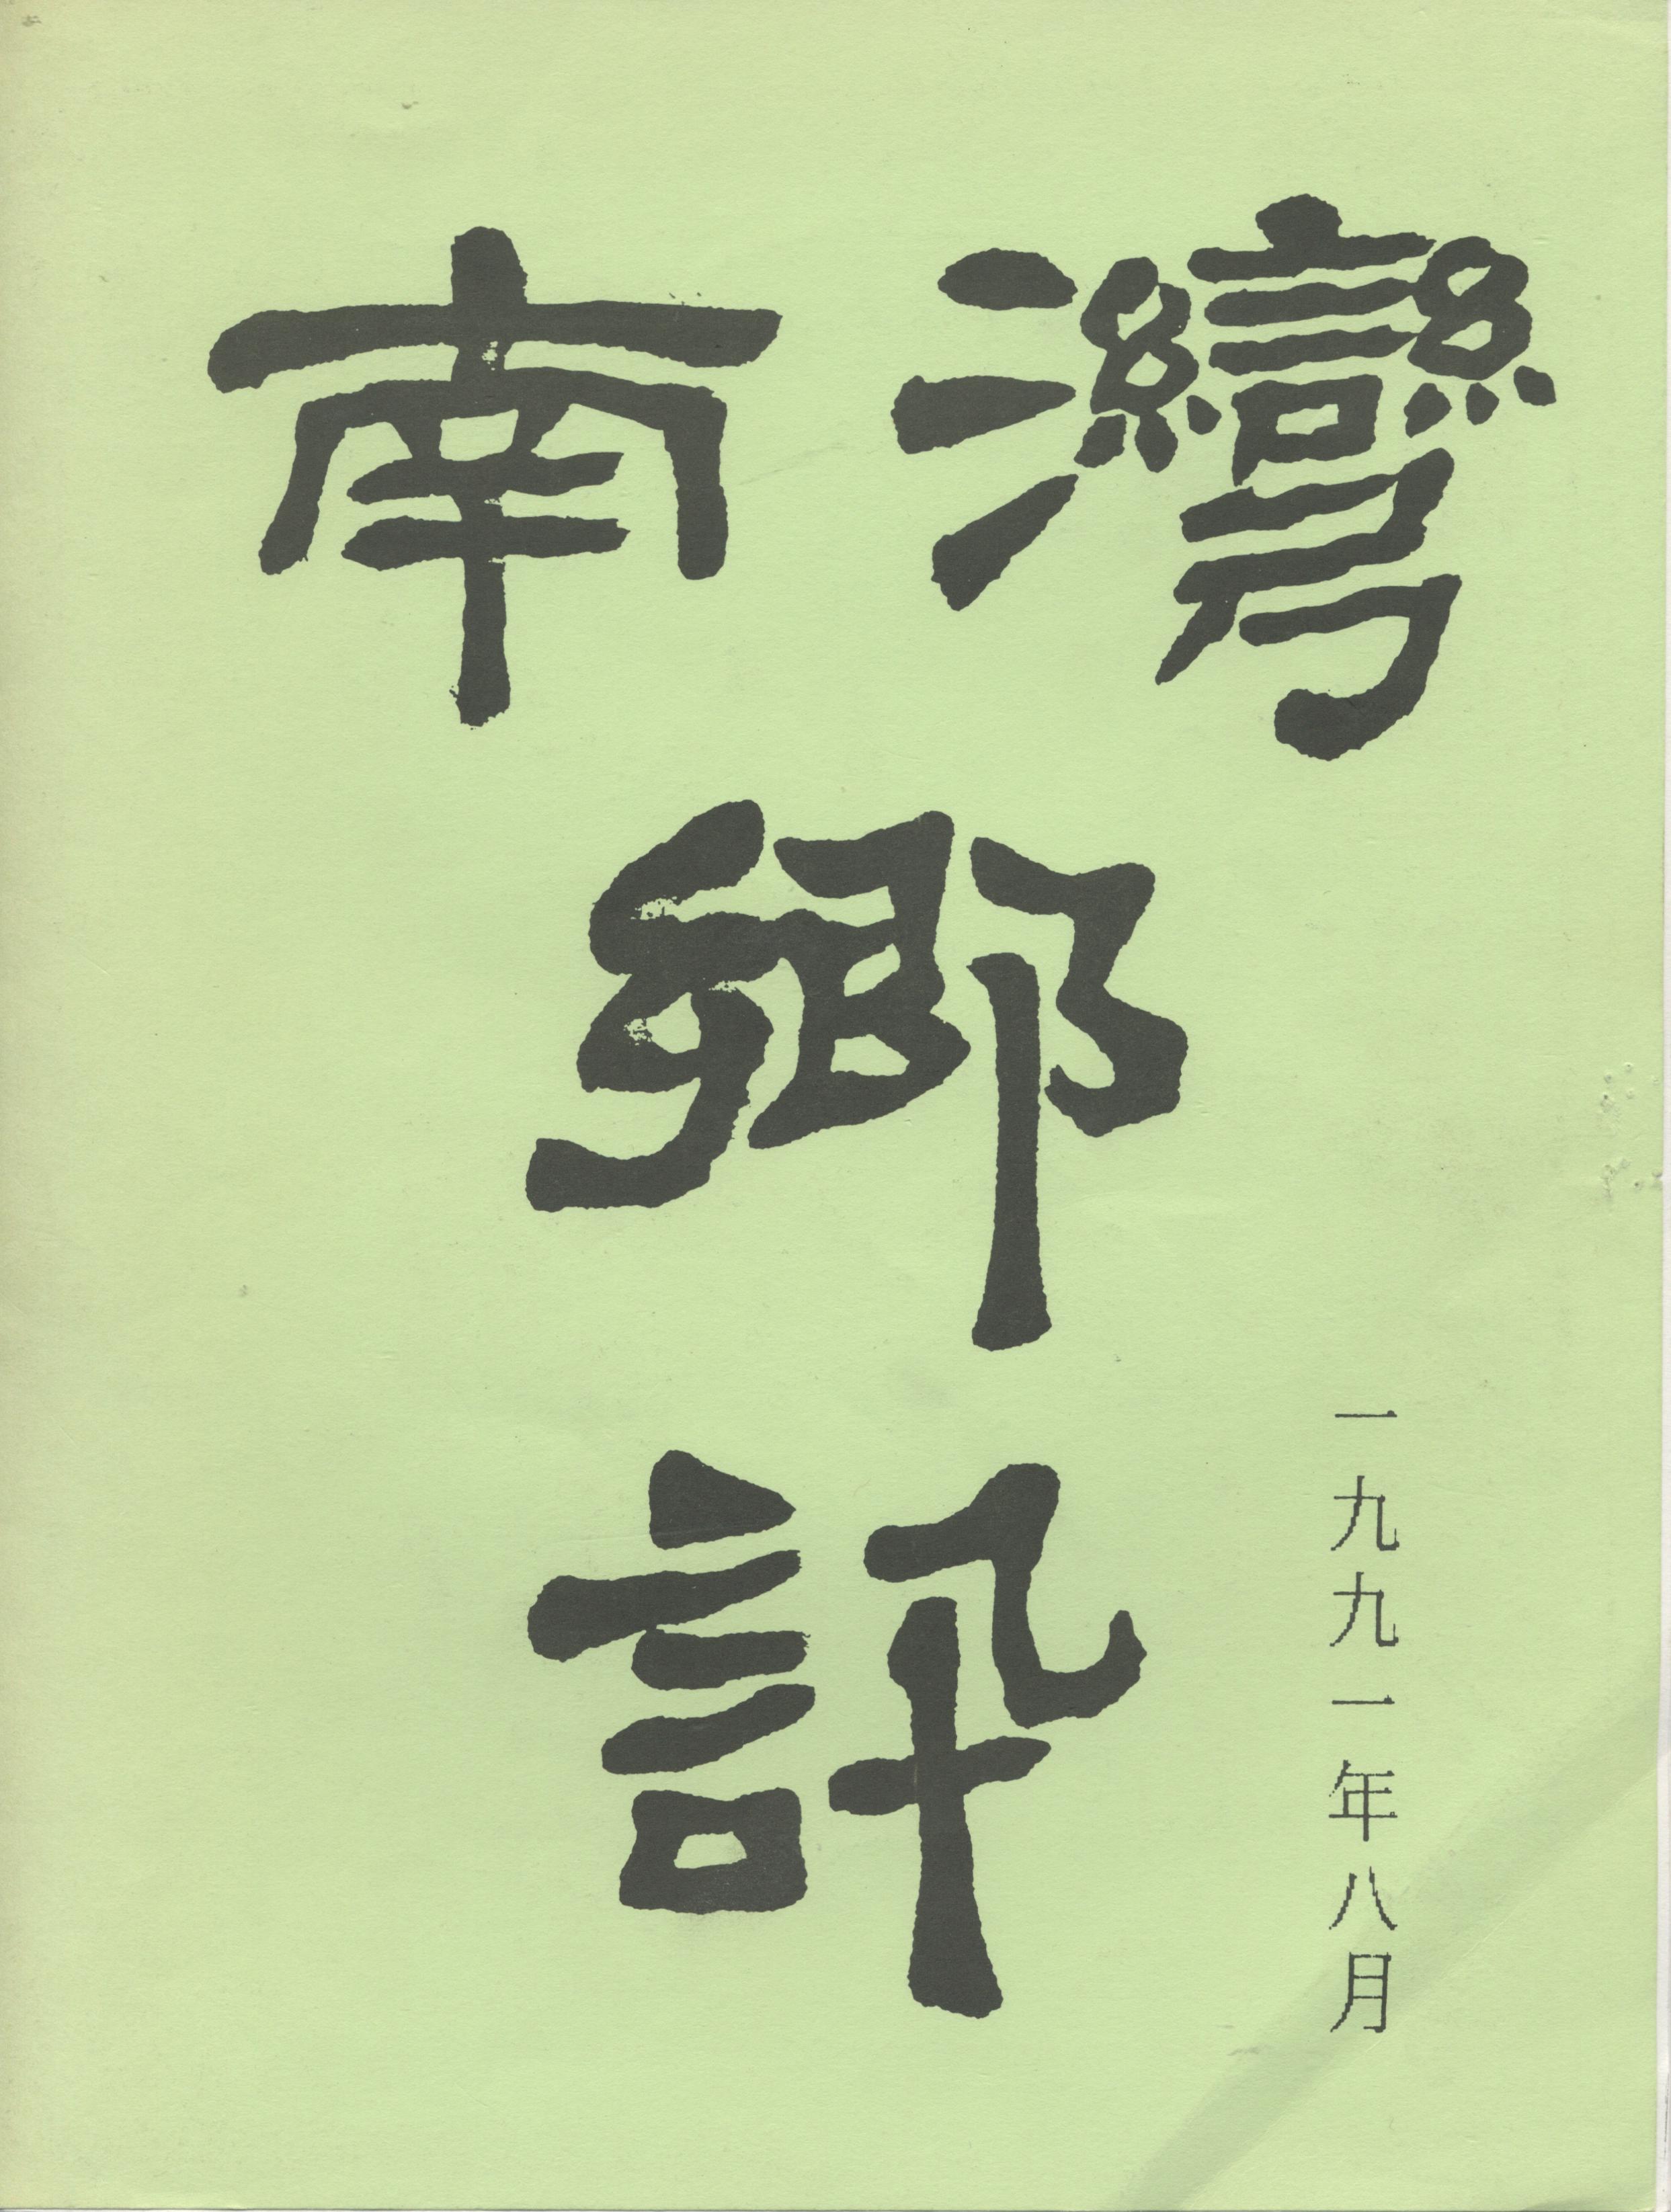 南灣
鄉
訊
一九九一年八月